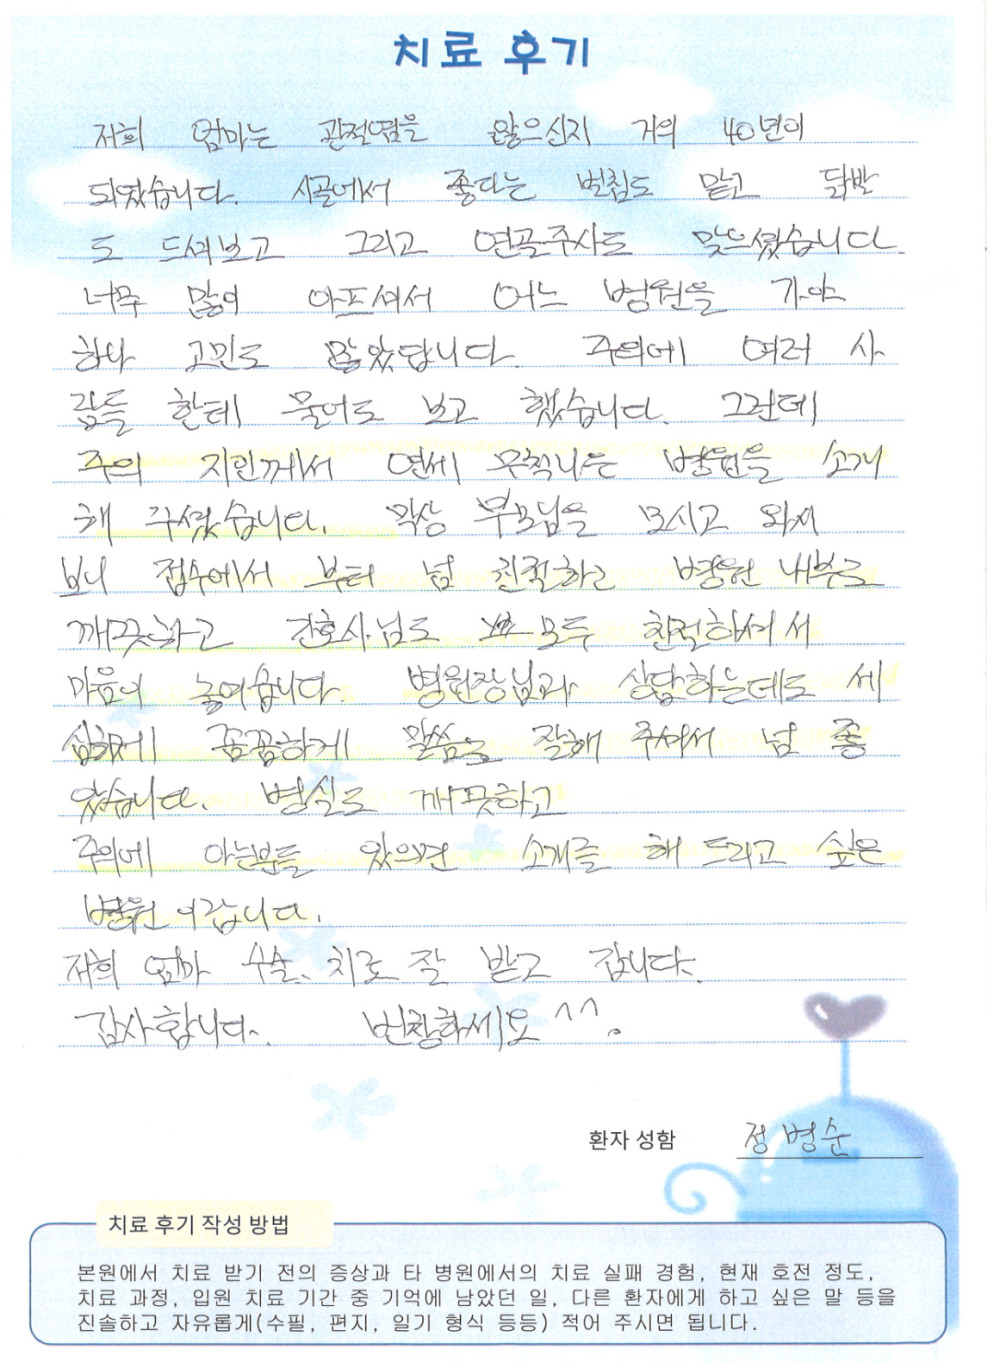 치료 후기
저희 엄마는 관절염을 앓으신지 거의 40년이
되였습니다. 시골에서 좋다는 벌침도 맡고 닭발
도 드셔보고 그리고 연골주사도 맞으셨습니다.
너무 많이 아프셔서 어느 병원을 가야
하나 고민도 많았답니다. 주의에 여러 사
람들 한테 물어도 보고 했습니다. 그런데
주의 지인께서 연세 무척나은 병원을 소개
해 주셨습니다. 막상 부모님을 모시고 와서
보니 접수에서 부터 넘 친절하고 병원 내부도
깨끗하고 간호사.님도 모두 친절하셔서
마음이 놓여습니다. 병원장님과 상담하는데도 세
심하게 꼼꼼하게 말씀을 잘해 주셔서 넘 좋
았습니다. 병실도 깨끗하고
주의에 아는분들 있으면 소개를 해 드리고 싶은
병원 이랍니다.
저희 엄마 수술, 치료 잘 받고 갑니다.
감사합니다. 번창하세요 ^^.
환자 성함 정병순
치료 후기 작성 방법
본원에서 치료 받기 전의 증상과 타 병원에서의 치료 실패 경험, 현재 호전 정도,
치료 과정, 입원 치료 기간 중 기억에 남았던 일, 다른 환자에게 하고 싶은 말 등을
진솔하고 자유롭게(수필, 편지, 일기 형식 등등) 적어 주시면 됩니다.